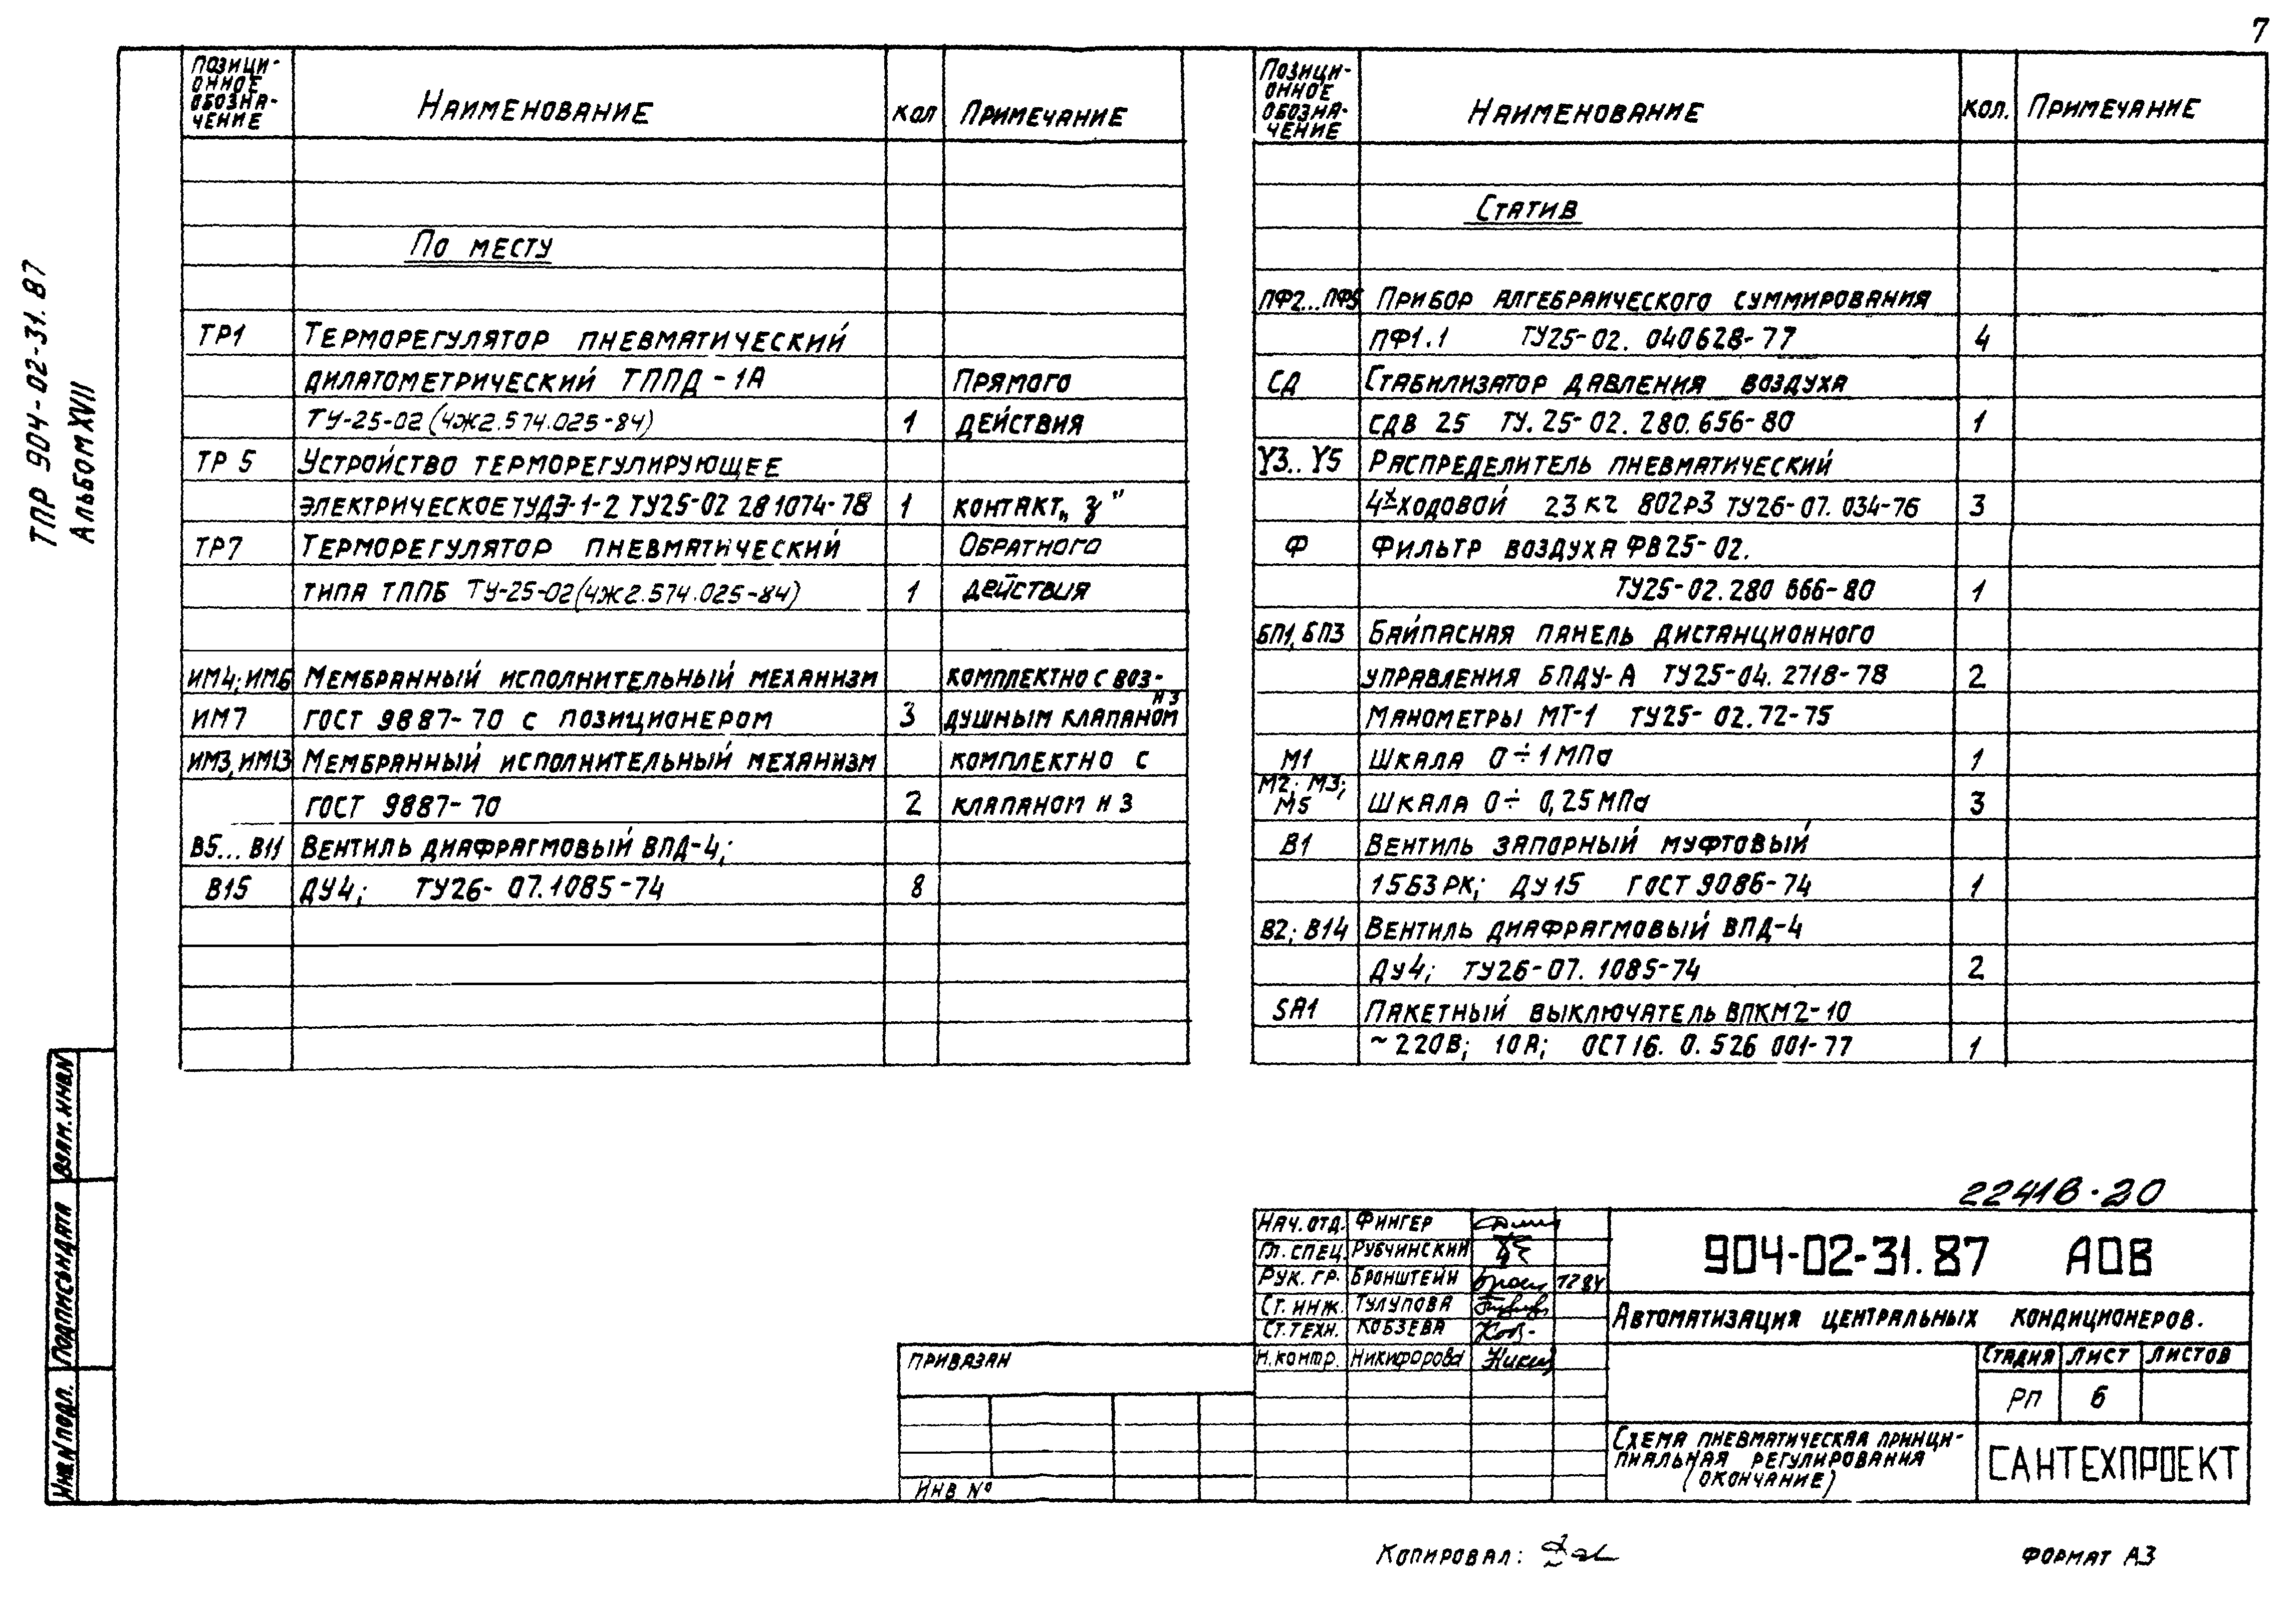 7
ТПР 904-02-31.87
Альбом XVII
Позици-
онное
обозна-
чение
Наименование
кол
Примечание
По месту
ТР1 Терморегулятор пневматический
дилатометрический ТППД-1А Прямого
ТУ-25-02(4Ж2.574.025-84) 1 действия
ТР 5 Устройство терморегулирующее
электрическое ТУДЭ-1-2 ТУ25-02 281074-78 1 контакт „З"
ТР7 Терморегулятор пневматический Обратного
типа ТППБ ТУ-25-02(4Ж2.574.025-84) 1 действия
ИМ4; ИМ6 Мембранный исполнительный механизм комплектно с воз-
ИМ7 ГОСТ 9887-70 с позиционером 3 душным клапаном НЗ
ИМ3, ИМ13 Мембранный исполнительный механизм комплектно с
ГОСТ 9887-70 2 клапаном НЗ
В5...В11 Вентиль диафрагмовый ВПД-4;
В15 ДУ4; ТУ26-07.1085-74 8
Позици-
онное
обозна-
чение
Наименование
кол.
Примечание
Статив
ПФ2...ПФ5 Прибор алгебраического суммирования
ПФ1.1 ТУ25-02.040628-77 4
СД Стабилизатор давления воздуха
СДВ 25 ТУ.25-02.280.656-80 1
Y3..Y5 Распределитель пневматический
4х ходовой 23 кг 802р3 ТУ26-07.034-76 3
Ф Фильтр воздуха ФВ25-02.
ТУ25-02.280 666-80 1
БП1, БП3 Байпасная панель дистанционного
управления БПДУ-А ТУ25-04.2718-78 2
Манометры МТ-1 ТУ25-02.72-75
М1 Шкала 0÷1 МПа 1
М2; М3;
М5 Шкала 0÷ 0,25 МПа 3
В1 Вентиль запорный муфтовый
15Б3РК; ДУ15 ГОСТ 9086-74 1
В2; В14 Вентиль диафрагмовый ВПД-4
ДУ4; ТУ26-07.1085-74 2
SA1 Пакетный выключатель ВПКМ2-10
~220В; 10А; ОСТ16.0.526 001-77 1
22416-20
Нач. отд. Фингер
Гл. спец. Рубчинский
Рук. гр. Бронштейн
Ст. инж. Тулупова
Ст. техн. Кобзева
Н. контр. Никифорова
904-02-31.87 АОВ
Автоматизация центральных кондиционеров.
Стадия Лист Листов
РП 6
Схема пневматическая принци-
пиальная регулирования
(окончание)
САНТЕХПРОЕКТ
Привязан
Инв №
Взам. инв. N
Подпись и дата
Инв. N подл.
Копировал:
Формат А3